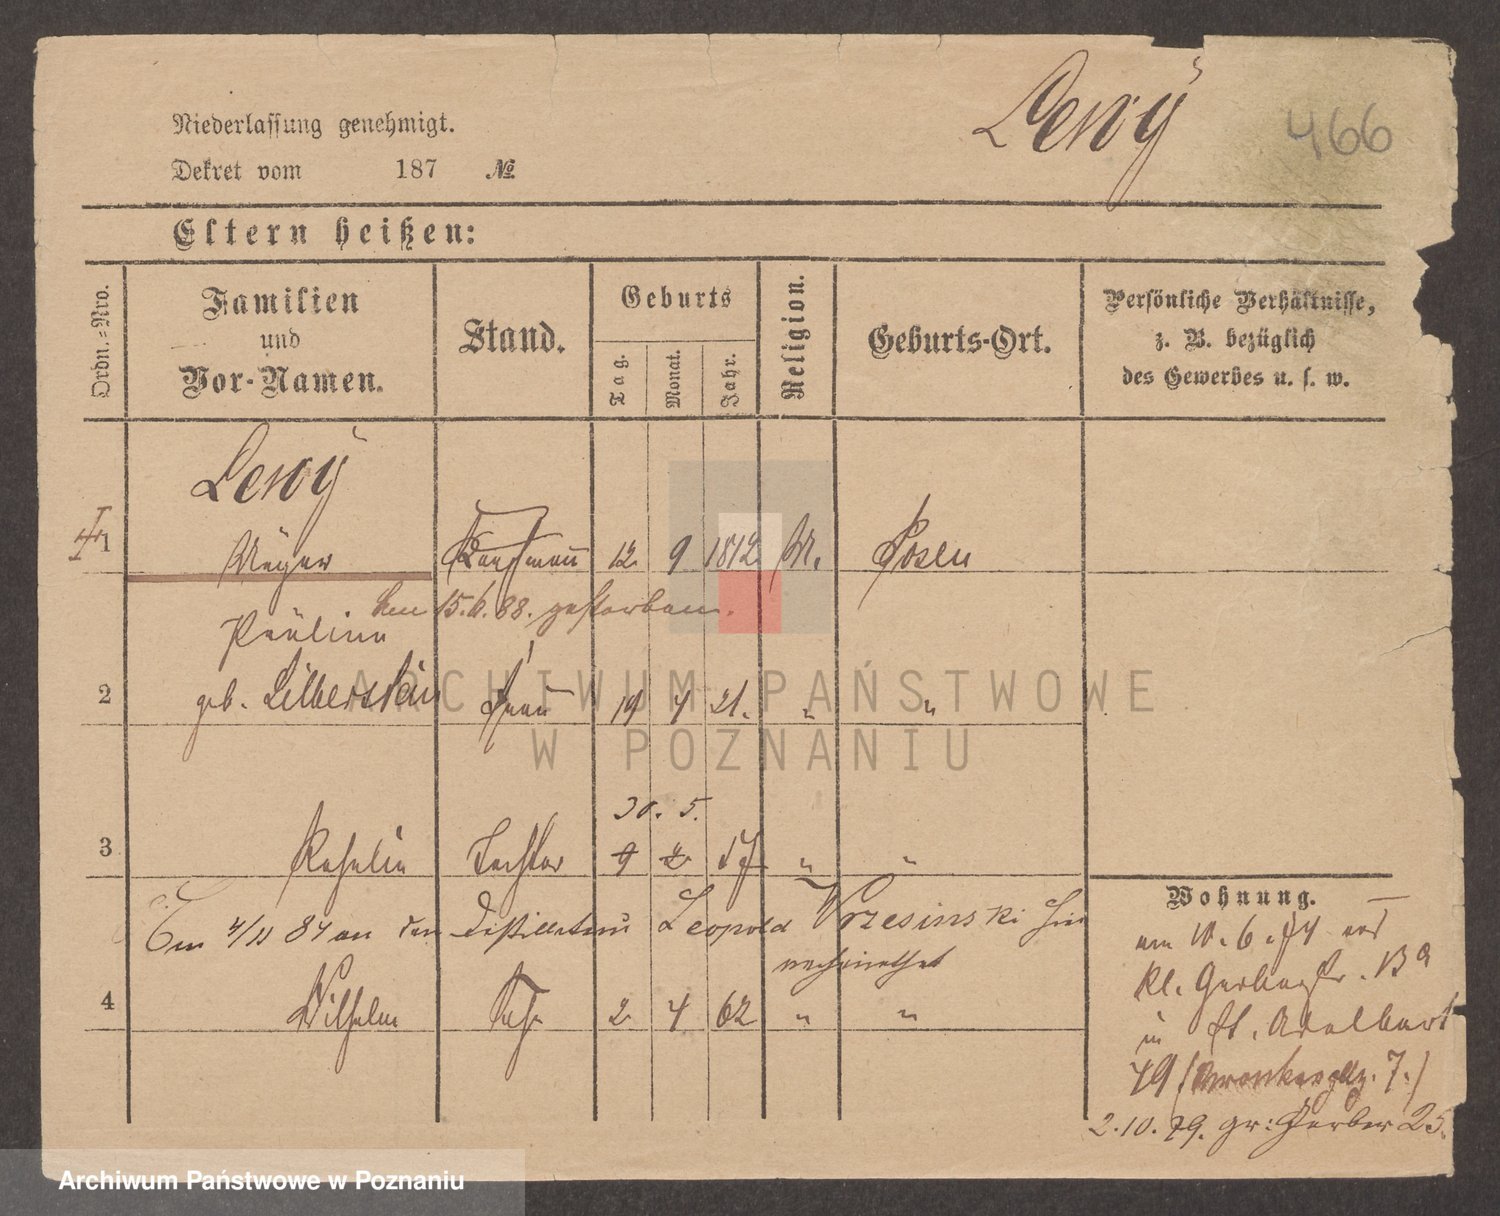 Lewÿ
466
Niederlassung genehmigt.
Dekret vom 187 №
Eltern heißen:
Ordn.=Nro.
Familien
und
Vor-Namen.
Stand.
Geburts
Tag.
Monat.
Jahr.
Religion.
Geburts-Ort.
Persönliche Verhältnisse,
z. B. bezüglich
des Gewerbes u. s. w.
Lewÿ
1 Meyer Kaufmann 12 9 1812 M. Posen
den 15.6.88. gestorben.
Pauline
2 geb. Silberstein Frau 19 4 21. " "
30. 5.
3 Rosalie Tochter 9 2 57 " "
4/11 84 an den Distillateur Leopold Wrzesinski hier
verheirathet
4 Wilhelm Sohn 2 4 62 " "
Wohnung.
am 10.6.74 von
kl. Gerberstr. 13a
in St. Adalbert
49 (Wronkerstr. 7.)
2.10.79. gr: Gerber 25.
ARCHIWUM PAŃSTWOWE
W POZNANIU
Archiwum Państwowe w Poznaniu